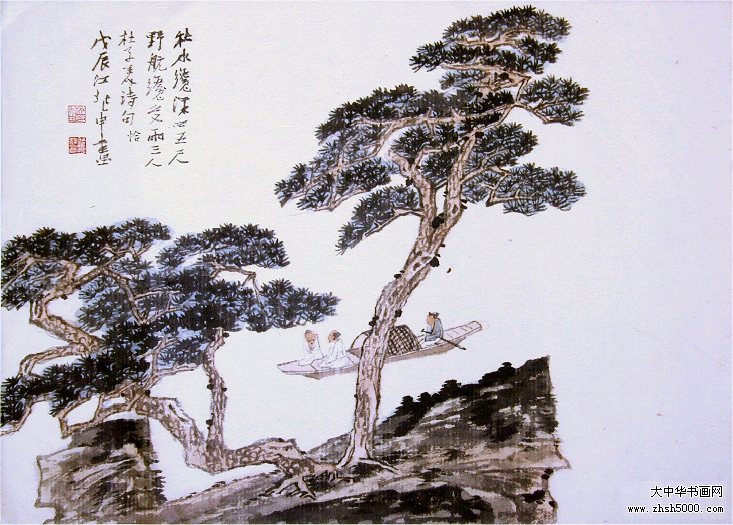 秋水纔深四五尺
野航纔受兩三人
杜子美詩句恰
戊辰江
大中华书画网
www.zhsh5000.com